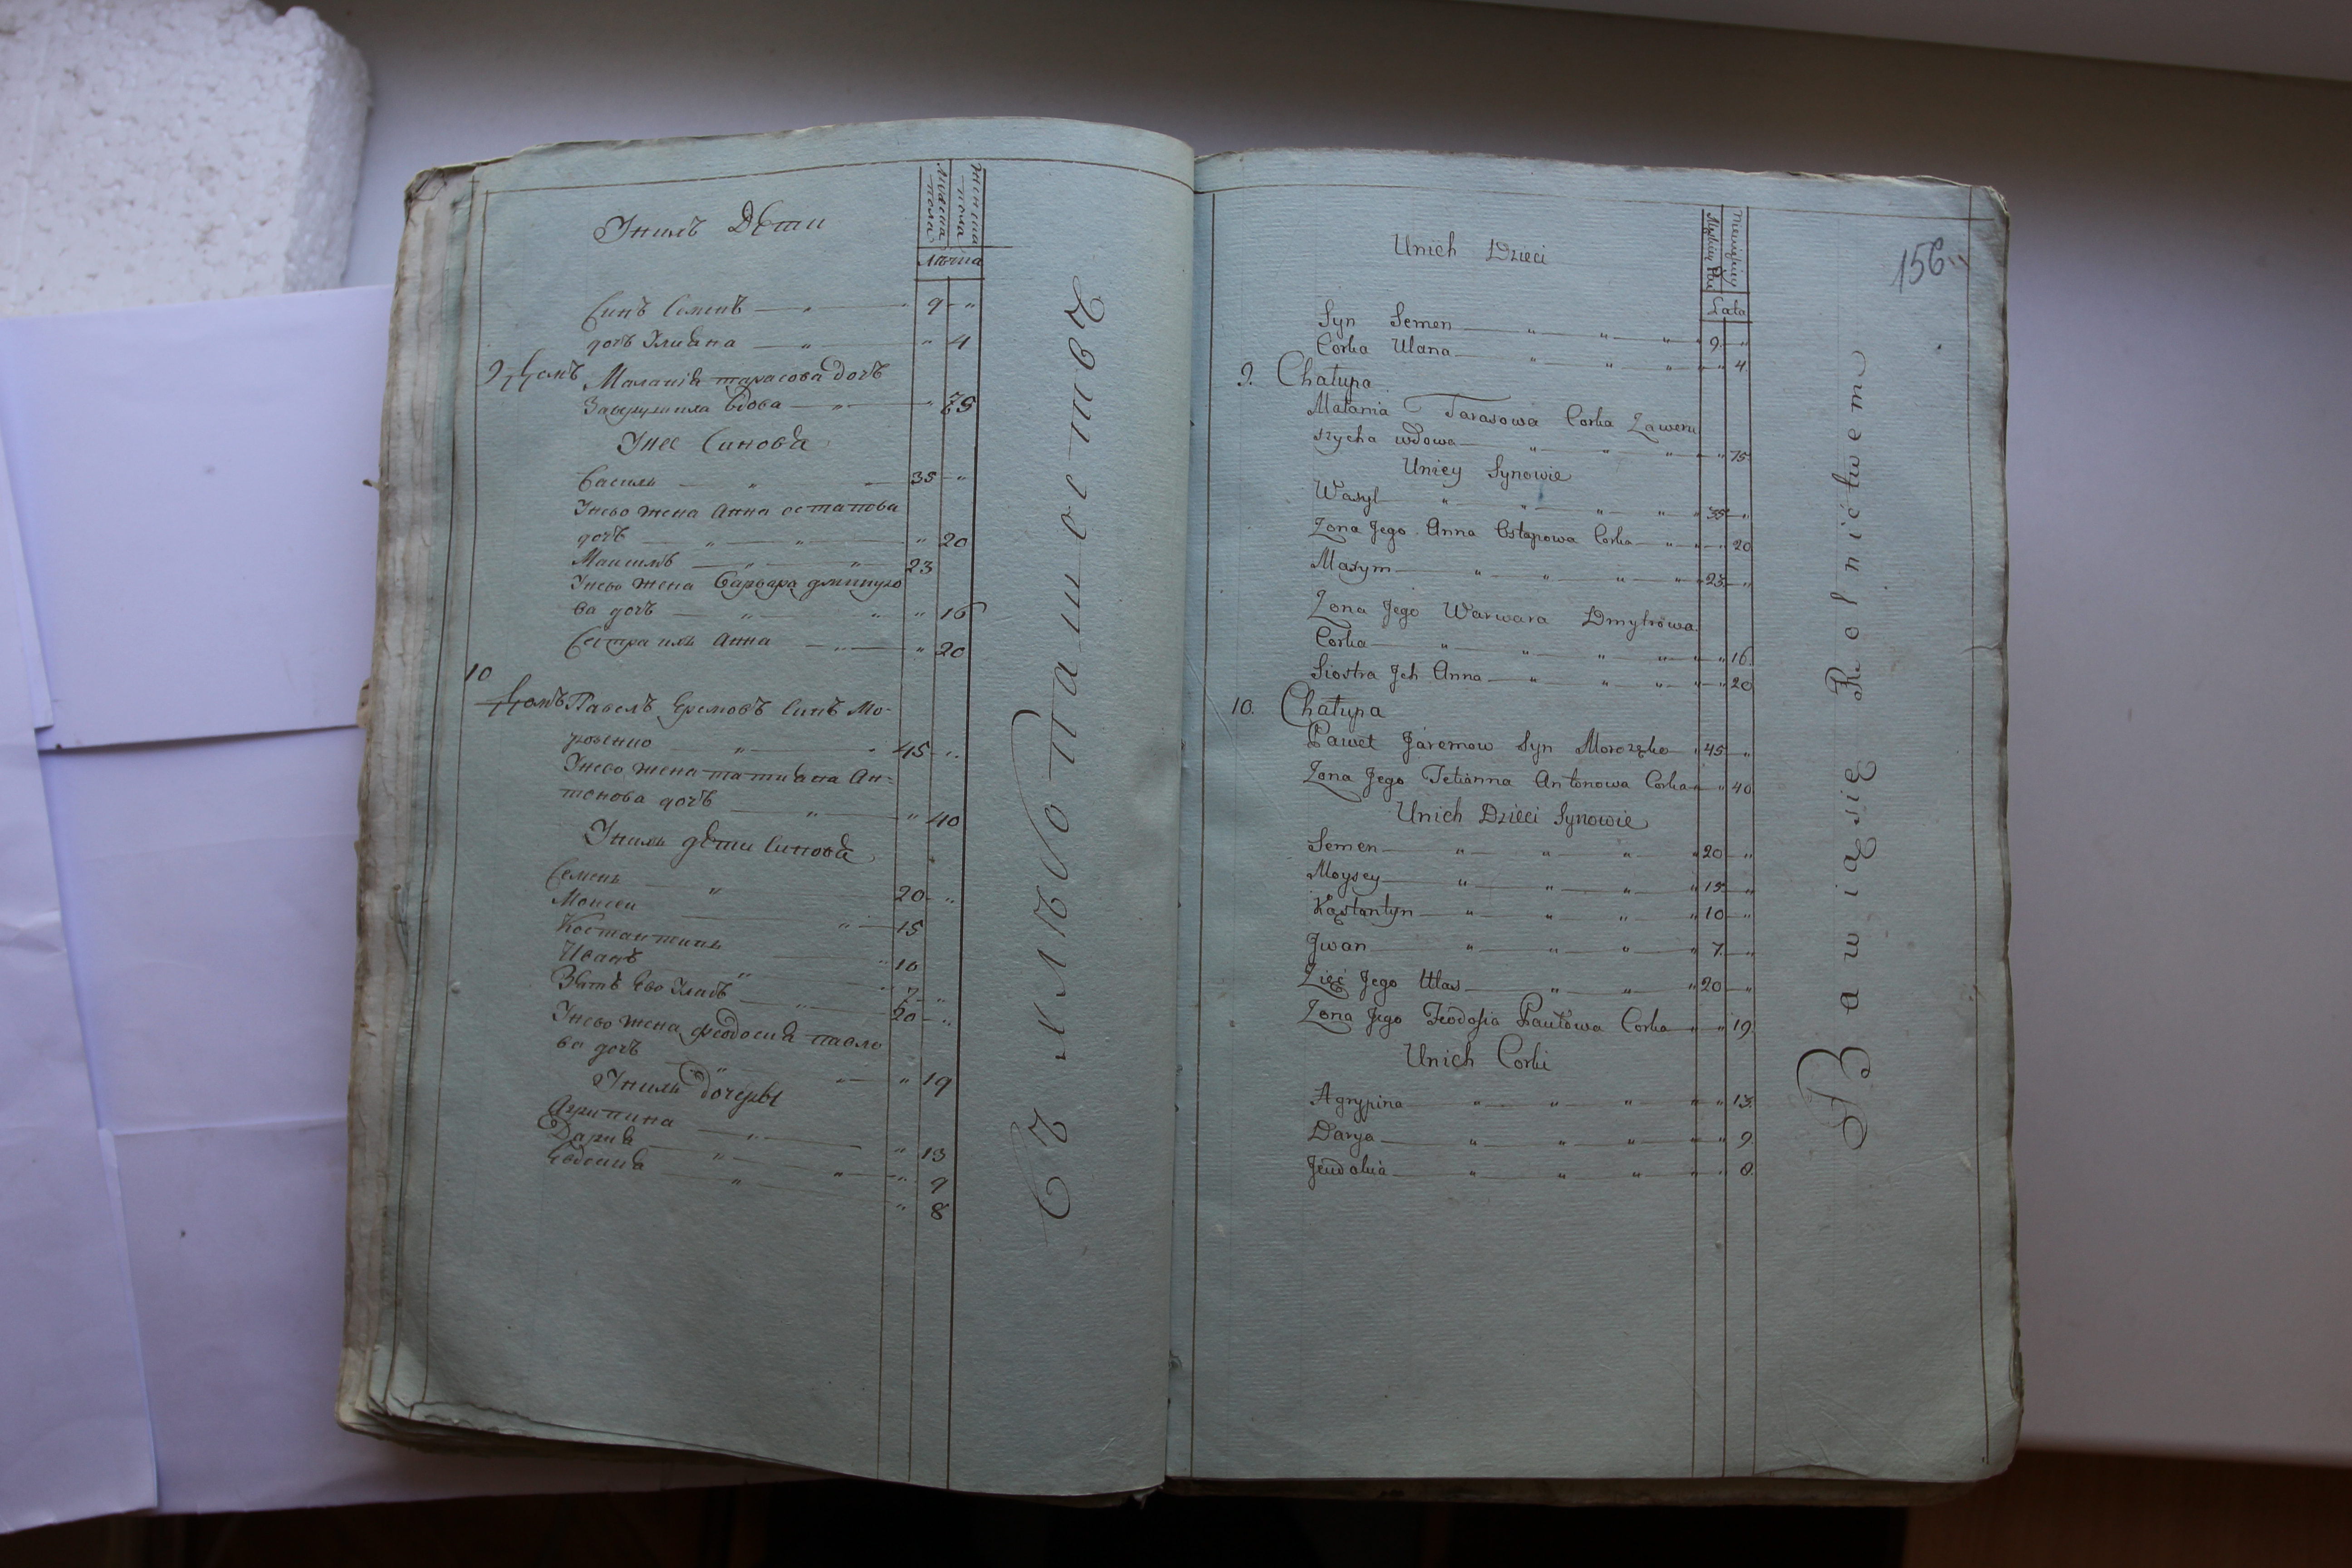 Мужеска пола
Женска пола
Лѣта
Унихъ Дѣти
Синъ Семенъ — „ — 9 — „
дочъ Улиана — „ — „ 4
9 Домъ Маланія тарасова дочъ
Заверушиха вдова — „ — „ 75
У нее Синовя
Василь — „ — 35 — „
У него жена Анна остапова
дочъ — „ — „ — „ 20
Максимъ — „ — „ — 23
У него жена Варвара дмитро
ва дочъ — „ — „ — „ 16
Сестра ихъ Анна — „ — „ 20
10
Домъ Павелъ Яремовъ Синъ Мо-
розенко — „ — „ 45 — „
У него жена татиана Ан=
тонова дочъ — „ — „ 40
У нихъ дѣти Синовя
Семенъ — „ — 20 — „
Моисей — „ — 15
Костантинъ — „ 10
Иванъ — „ — „ 7 — „
Зять Его Уласъ — „ — 20 — „
У него жена феодосия павло
ва дочъ — „ — „ — „ 19
У нихъ дочеры
Агрипина — „ — „ 13
Дария — „ — „ — „ 9
Евдокия — „ — „ 8
Съ хлѣбопашества
156
Męskiey Płci
Niewieściey
Lata
Unich Dzieci
Syn Semen — „ — „ — „ — „ 9. — „
Corka Ulana — „ — „ — „ — „ 4
9. Chałupa
Małania Tarasowa Corka Zaweru
szycha wdowa — „ — „ — „ — „ 75
Uniey Synowie
Wasyl — „ — „ — „ — „ 35 — „
Zona Jego Anna Ostapowa Corka — „ — „ — 20
Maxym — „ — „ — „ — „ 23. — „
Zona Jego Warwara Dmytrowa
Corka — „ — „ — „ — „ — „ 16.
Siostra Jch Anna — „ — „ — „ — „ 20
10. Chałupa
Paweł Jaremow Syn Morozęko „ 45 — „
Zona Jego Tetianna Antonowa Corka — „ 40
Unich Dzieci Synowie
Semen — „ — „ — „ — „ 20 — „
Moysey — „ — „ — „ — „ 15 — „
Kąstantyn — „ — „ — „ — „ 10 — „
Jwan — „ — „ — „ — „ 7. — „
Zięć Jego Ułas — „ — „ — „ 20 — „
Zona Jego Teodosia Pawłowa Corka — „ — „ 19.
Unich Corki
Agrypina — „ — „ — „ — „ — „ 13.
Darya — „ — „ — „ — „ — „ 9.
Jeudokia — „ — „ — „ — „ — „ 8.
Bawią się Rolnictwem